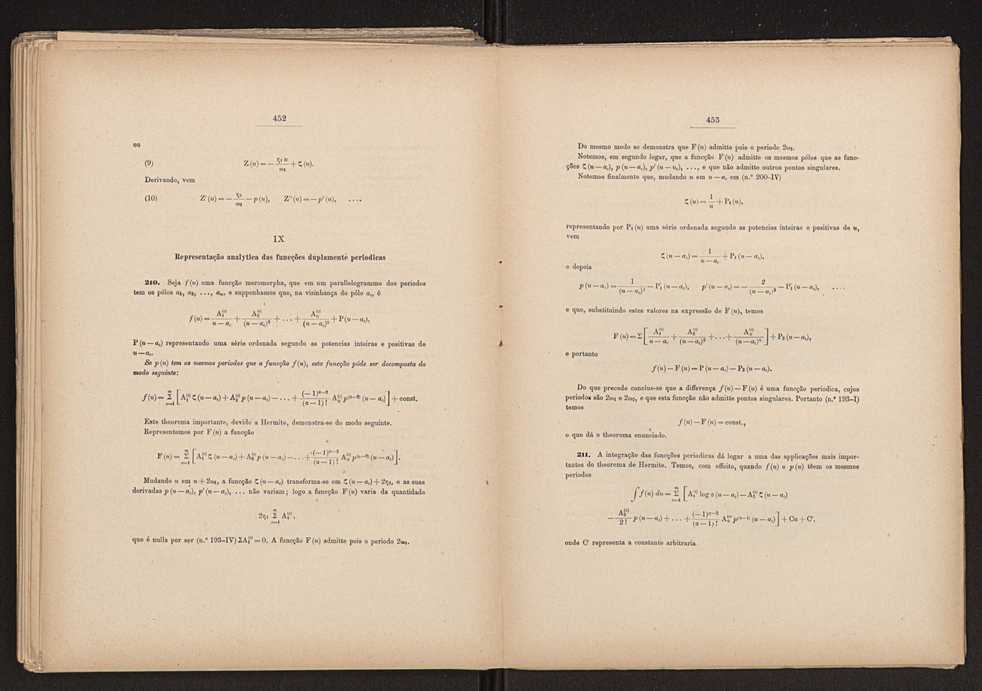 452
ou
(9) Z (u) = − η₁ u / ω₁ + ζ (u).
Derivando, vem
(10) Z′ (u) = − η₁ / ω₁ − p (u), Z″ (u) = − p′ (u), ....
IX
Representação analytica das funcções duplamente periodicas
210. Seja f (u) uma funcção meromorpha, que em um parallelogrammo dos periodos
tem os pólos a₁, a₂, ..., aₘ, e supponhamos que, na visinhança do pólo aᵢ, é
f (u) = A₁⁽ⁱ⁾ / (u − aᵢ) + A₂⁽ⁱ⁾ / (u − aᵢ)² + ... + Aₐ⁽ⁱ⁾ / (u − aᵢ)ᵅ + P (u − aᵢ),
P (u − aᵢ) representando uma série ordenada segundo as potencias inteiras e positivas de
u − aᵢ.
Se p (u) tem os mesmos periodos que a funcção f (u), esta funcção póde ser decomposta do
modo seguinte:
f (u) = Σᵢ₌₁ᵐ [A₁⁽ⁱ⁾ ζ (u − aᵢ) + A₂⁽ⁱ⁾ p (u − aᵢ) − ... + (−1)ᵅ⁻² / (α − 1)! Aₐ⁽ⁱ⁾ p⁽ᵅ⁻²⁾ (u − aᵢ)] + const.
Este theorema importante, devido a Hermite, demonstra-se do modo seguinte.
Representemos por F (u) a funcção
F (u) = Σᵢ₌₁ᵐ [A₁⁽ⁱ⁾ ζ (u − aᵢ) + A₂⁽ⁱ⁾ p (u − aᵢ) − ... + (−1)ᵅ⁻² / (α − 1)! Aₐ⁽ⁱ⁾ p⁽ᵅ⁻²⁾ (u − aᵢ)].
Mudando u em u + 2ω₁, a funcção ζ (u − aᵢ) transforma-se em ζ (u − aᵢ) + 2η₁, e as suas
derivadas p (u − aᵢ), p′ (u − aᵢ), ... não variam; logo a funcção F (u) varia da quantidade
2η₁ Σᵢ₌₁ᵐ A₁⁽ⁱ⁾,
que é nulla por ser (n.º 193-IV) ΣA₁⁽ⁱ⁾ = 0. A funcção F (u) admitte pois o periodo 2ω₁.
453
Do mesmo modo se demonstra que F (u) admitte pois o periodo 2ω₂.
Notemos, em segundo logar, que a funcção F (u) admitte os mesmos pólos que as func-
ções ζ (u − aᵢ), p (u − aᵢ), p′ (u − aᵢ), ..., e que não admitte outros pontos singulares.
Notemos finalmente que, mudando u em u − aᵢ em (n.º 200-IV)
ζ (u) = 1 / u + P₁ (u),
representando por P₁ (u) uma série ordenada segundo as potencias inteiras e positivas de u,
vem
ζ (u − aᵢ) = 1 / (u − aᵢ) + P₁ (u − aᵢ),
e depois
p (u − aᵢ) = 1 / (u − aᵢ)² − P′₁ (u − aᵢ), p′ (u − aᵢ) = − 2 / (u − aᵢ)³ − P″₁ (u − aᵢ), ....
e que, substituindo estes valores na expressão de F (u), temos
F (u) = Σ [A₁⁽ⁱ⁾ / (u − aᵢ) + A₂⁽ⁱ⁾ / (u − aᵢ)² + ... + Aₐ⁽ⁱ⁾ / (u − aᵢ)ᵅ] + P₂ (u − aᵢ),
e portanto
f (u) − F (u) = P (u − aᵢ) − P₂ (u − aᵢ).
Do que precede conclue-se que a differença f (u) − F (u) é uma funcção periodica, cujos
periodos são 2ω₁ e 2ω₂, e que esta funcção não admitte pontos singulares. Portanto (n.º 193-I)
temos
f (u) − F (u) = const.,
o que dá o theorema enunciado.
211. A integração das funcções periodicas dá logar a uma das applicações mais impor-
tantes do theorema de Hermite. Temos, com effeito, quando f (u) e p (u) têem os mesmos
periodos
∫ f (u) du = Σᵢ₌₁ᵐ [A₁⁽ⁱ⁾ log σ (u − aᵢ) − A₂⁽ⁱ⁾ ζ (u − aᵢ)
− A₃⁽ⁱ⁾ / 2! p (u − aᵢ) + ... + (−1)ᵅ⁻² / (α − 1)! Aₐ⁽ⁱ⁾ p⁽ᵅ⁻³⁾ (u − aᵢ)] + Cu + C′,
onde C′ representa a constante arbitraria.